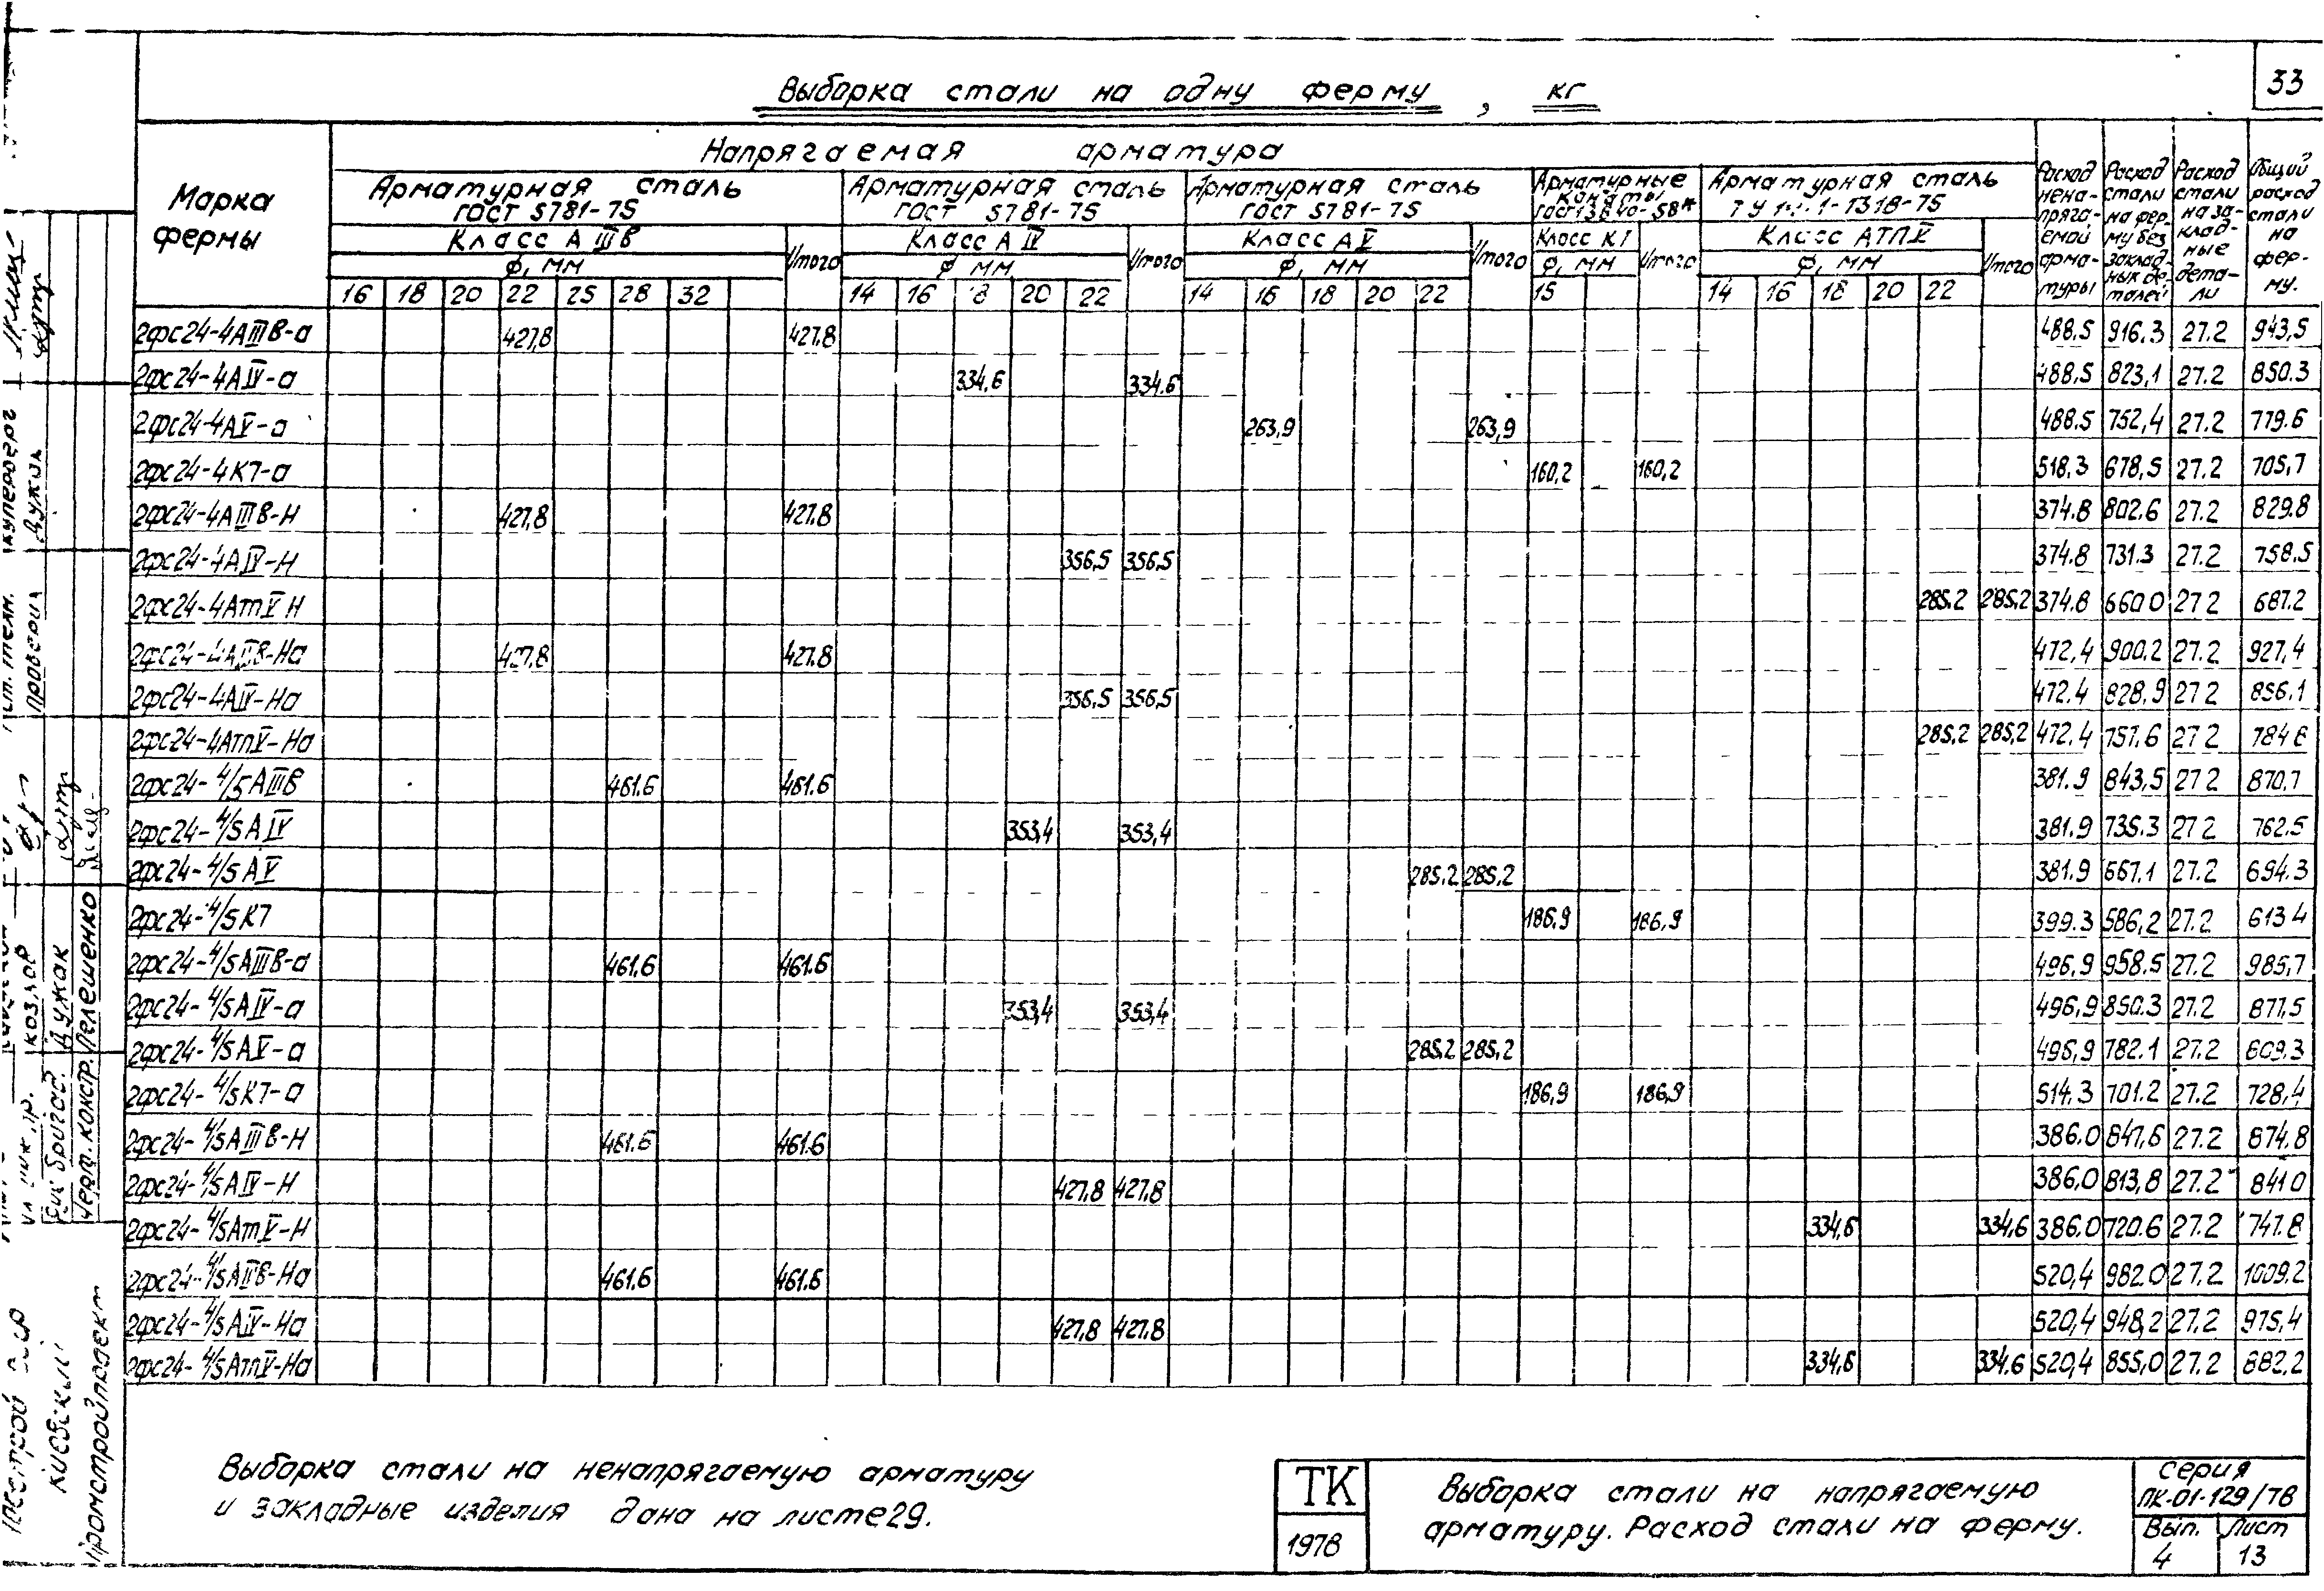 33
Выборка стали на одну ферму, кг
Марка фермы
Напрягаемая арматура
Арматурная сталь ГОСТ 5781-75
Класс А IIIв
Ф, мм
16 18 20 22 25 28 32
Итого
Арматурная сталь ГОСТ 5781-75
Класс А IV
Ф мм
14 16 18 20 22
Итого
Арматурная сталь ГОСТ 5781-75
Класс А V
Ф, мм
14 16 18 20 22
Итого
Арматурные канаты ГОСТ 13840-68*
Класс К7
Ф, мм
15
Итого
Арматурная сталь
Класс АтпV
Ф, мм
14 16 18 20 22
Итого
Расход ненапрягаемой арматуры
Расход стали на ферму без закладных деталей
Расход стали на закладные детали
Общий расход стали на ферму.
2фс24-4АIIIв-а 427,8 427.8 488.5 916.3 27.2 943,5
2фс24-4АIV-а 334,6 334.6 488,5 823,1 27.2 850.3
2фс24-4АV-а 263,9 263,9 488.5 752,4 27.2 779.6
2фс24-4К7-а 160,2 160,2 518,3 678,5 27.2 705,7
2фс24-4АIIIв-Н 427,8 427.8 374.8 802.6 27.2 829.8
2фс24-4АIV-Н 356,5 356,5 374.8 731.3 27.2 758.5
2фс24-4АтV Н 285.2 285,2 374.8 660 0 27 2 687.2
2фс24-4АIIIв-На 427.8 427.8 472,4 900.2 27.2 927,4
2фс24-4АIV-На 356,5 356,5 472.4 828,9 27 2 856,1
2фс24-4АтпV-На 285,2 285,2 472,4 757.6 27 2 784 8
2фс24-4/5АIIIв 461.6 461.6 381.9 843,5 27 2 870.7
2фс24-4/5АIV 353,4 353,4 381.9 735.3 27 2 762.5
2фс24-4/5АV 285.2 285,2 381.9 667.1 27.2 694.3
2фс24-4/5К7 186,9 186,9 399.3 586,2 27.2 613 4
2фс24-4/5АIIIв-а 461.6 461.6 496,9 958.5 27.2 985,7
2фс24-4/5АIV-а 353,4 353,4 496,9 850.3 27.2 877,5
2фс24-4/5АV-а 285.2 285,2 496,9 782.1 27.2 809.3
2фс24-4/5К7-а 186,9 186,9 514.3 701.2 27.2 728,4
2фс24-4/5АIIIв-Н 461.6 461.6 386.0 847,6 27.2 874.8
2фс24-4/5АIV-Н 427,8 427,8 386,0 813,8 27.2 841 0
2фс24-4/5АтV-Н 334,6 334,6 386.0 720.6 27.2 747.8
2фс24-4/5АIIIв-На 461.6 461.6 520,4 982.0 27.2 1009.2
2фс24-4/5АIV-На 427,8 427,8 520,4 948,2 27.2 975,4
2фс24-4/5АтпV-На 334,6 334,6 520,4 855,0 27.2 882,2
Выборка стали на ненапрягаемую арматуру
и закладные изделия дана на листе 29.
ТК
1978
Выборка стали на напрягаемую
арматуру. Расход стали на ферму.
Серия
ПК-01-129/78
Вып. Лист
4 13
Проверил Дужак
Рук бригад. Дужак
Черт. констр. Пелешенко
Киевский
Промстройпроект